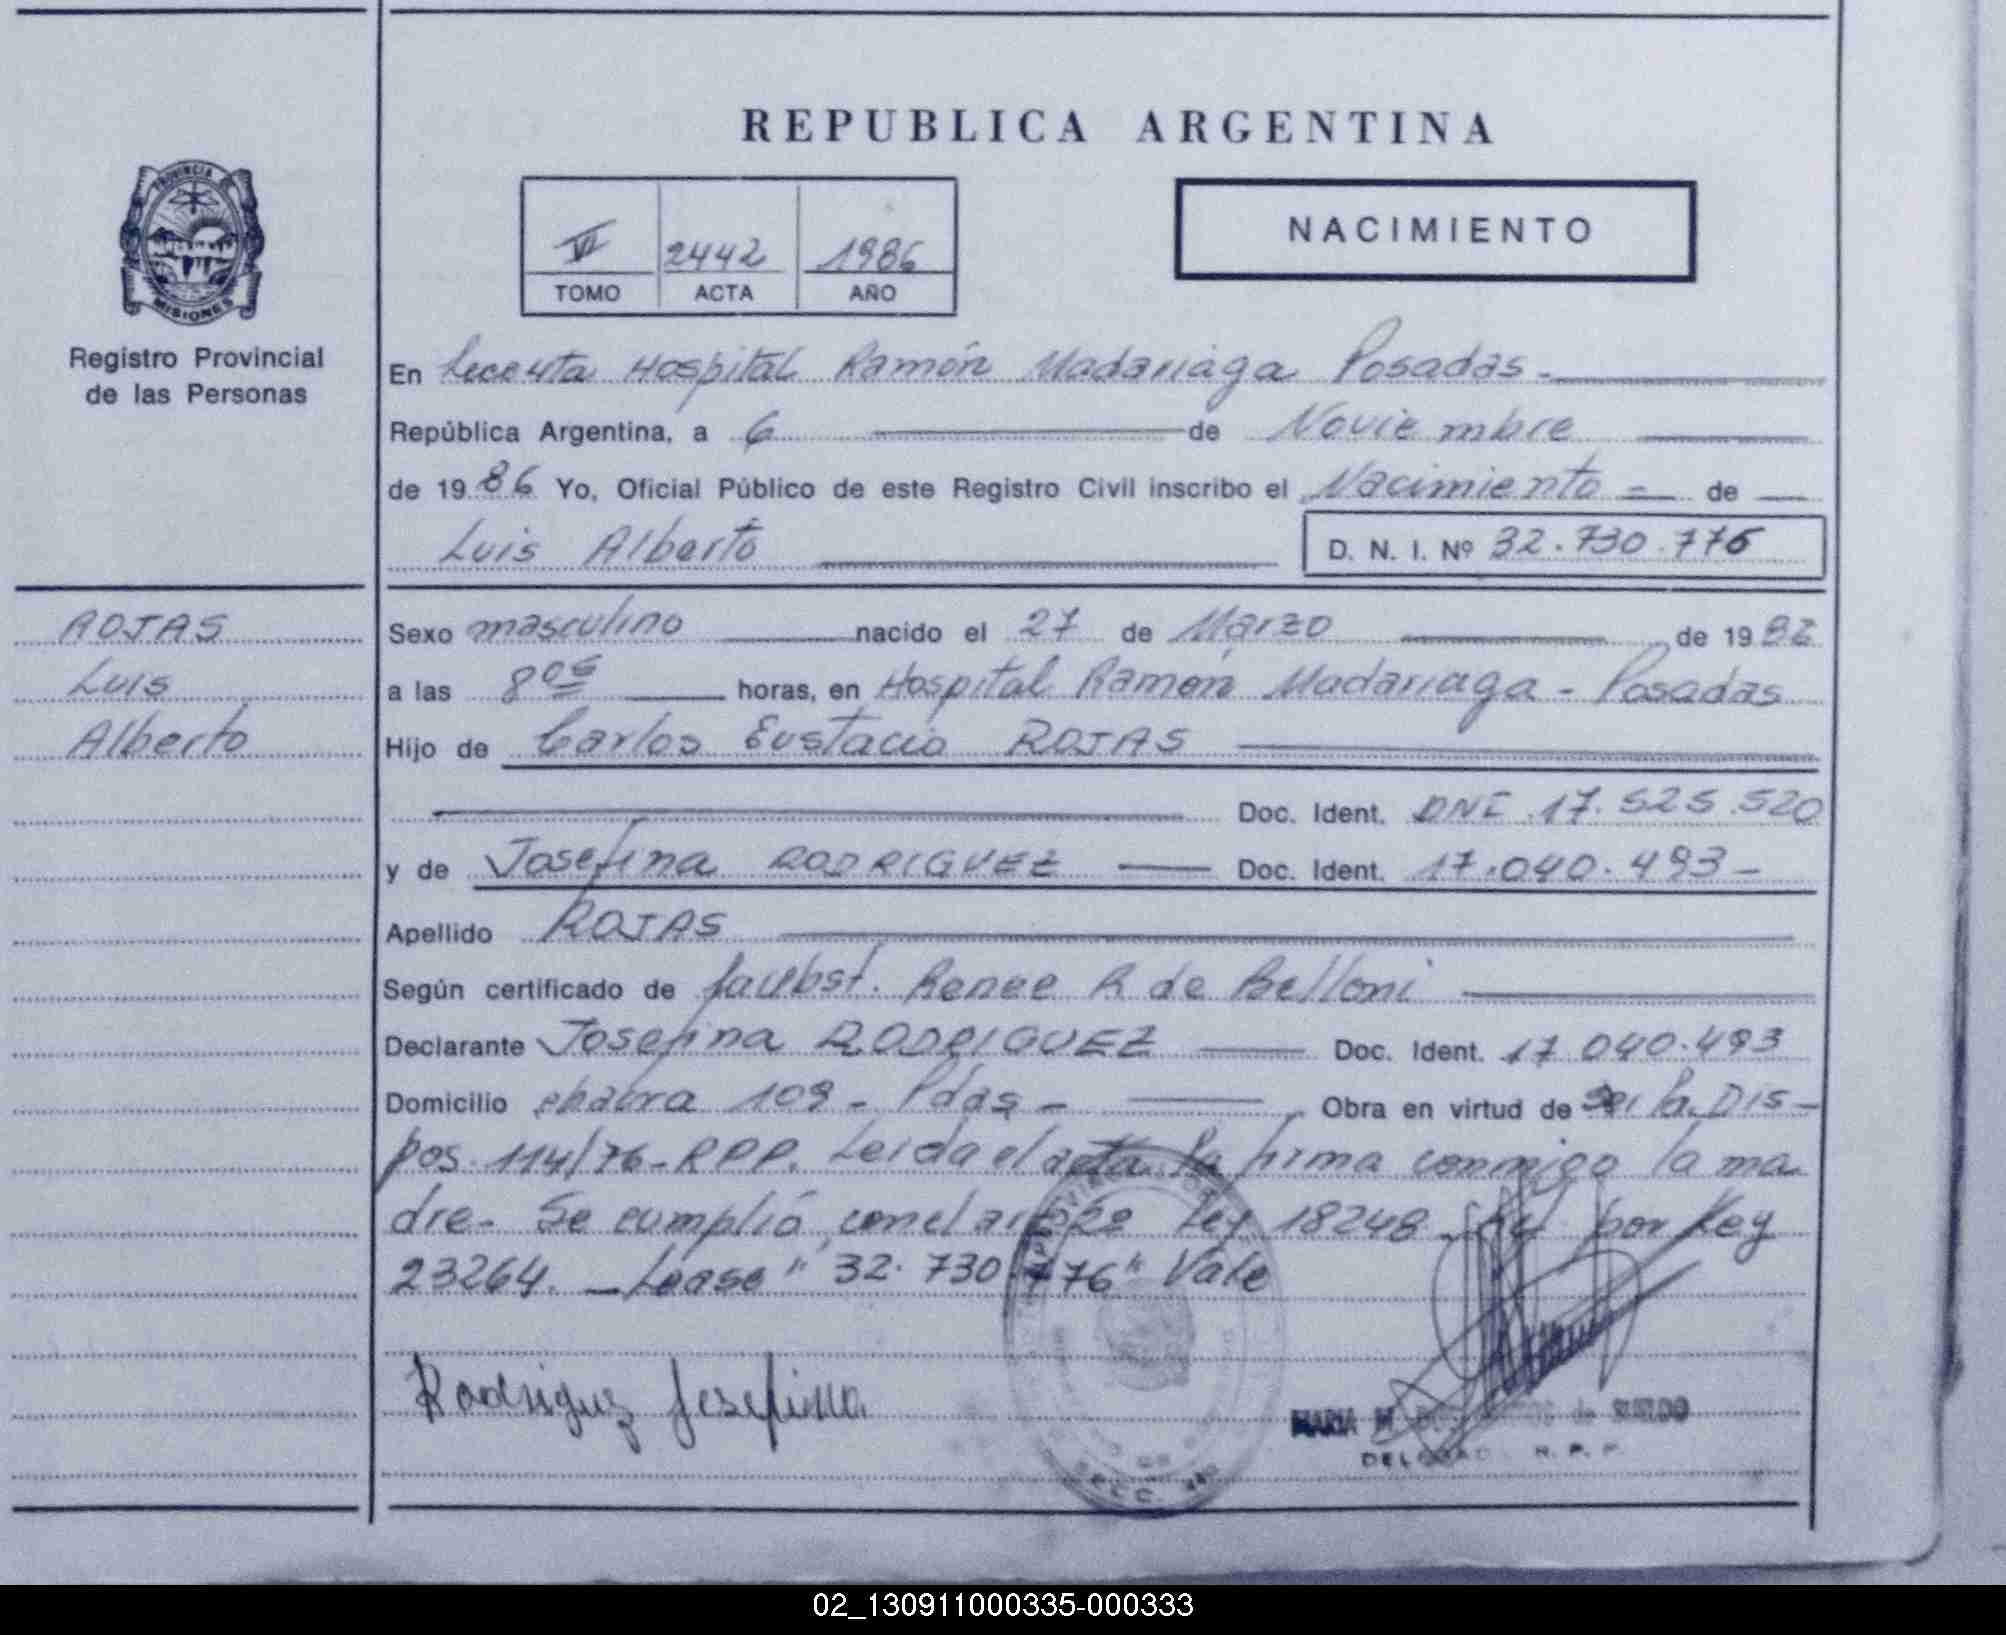 REPUBLICA ARGENTINA
PROVINCIA DE
MISIONES
Registro Provincial
de las Personas
VI 2442 1986
TOMO ACTA AÑO
NACIMIENTO
En Hospital Ramón Madariaga Posadas.
República Argentina, a 6 de Noviembre
de 1986 Yo, Oficial Público de este Registro Civil inscribo el Nacimiento de
Luis Alberto D. N. I. Nº 32.730.776
ROJAS
Luis
Alberto
Sexo masculino nacido el 27 de Marzo de 19
a las 8 05 horas, en Hospital Ramón Madariaga - Posadas
Hijo de Carlos Eustacio ROJAS
Doc. Ident. DNI 17.525.520
y de Josefina RODRIGUEZ Doc. Ident. 17.040.493-
Apellido ROJAS
Según certificado de Renee R de Belloni
Declarante Josefina RODRIGUEZ Doc. Ident. 17 040.493
Domicilio chacra 109 - Pdas - Obra en virtud de la Dis-
pos. 114/76-RPP. Leida el acta la firma conmigo la ma
dre- Se cumplió con el art Ley 18248 por Ley
23264. - Lease "32.730.776" Vale
Rodriguez Josefina
MARIA
R. P. P.
02_130911000335-000333